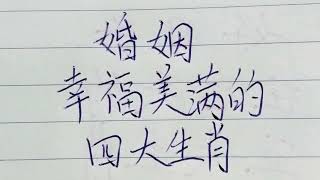 婚姻
幸福美满的
四大生肖